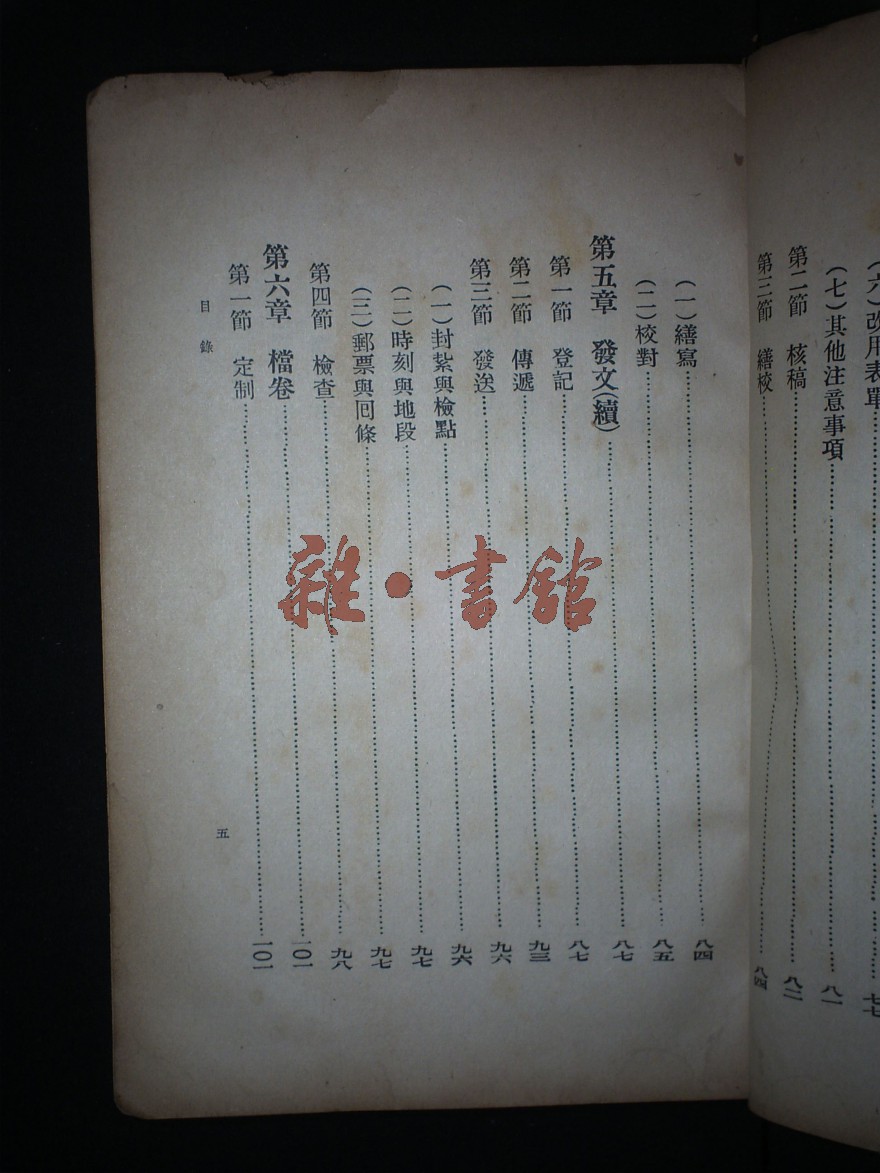 （六）改用表單……七七
（七）其他注意事項……八一
第二節　核稿……八二
第三節　繕校……八四
（一）繕寫……八四
（二）校對……八五
第五章　發文（續）……八七
第一節　登記……八七
第二節　傳遞……九三
第三節　發送……九六
（一）封紮與檢點……九六
（二）時刻與地段……九七
（三）郵票與回條……九七
第四節　檢查……九八
第六章　檔卷……一〇一
第一節　定制……一〇一
目錄
五
雜·書館